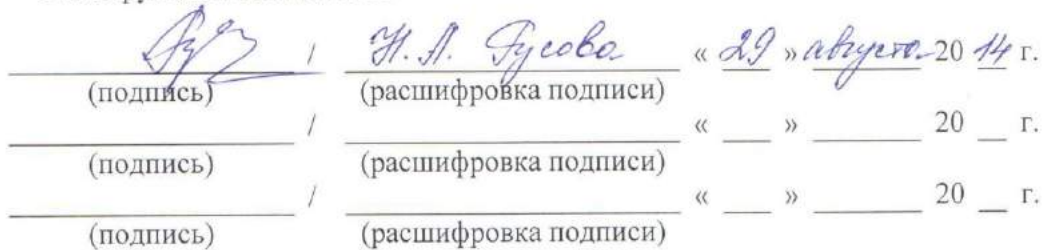 / Н. Л. Гусова « 29 » августа 20 14 г.
(подпись) (расшифровка подписи)
/ « __ » ______ 20 __ г.
(подпись) (расшифровка подписи)
/ « __ » ______ 20 __ г.
(подпись) (расшифровка подписи)